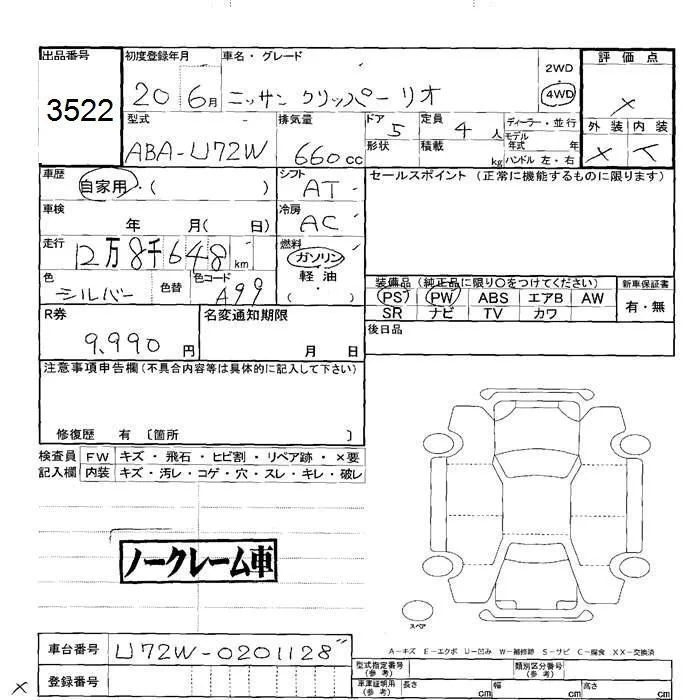 出品番号
3522
初度登録年月
20 6月
車名・グレード
ニッサン クリッパーリオ
2WD
4WD
評価点
×
外装 内装
×
型式
ABA-U72W
排気量
660cc
ドア
5
形状
定員
4人
積載
kg
ディーラー・並行
モデル
年式 年
ハンドル 左・右
車歴
自家用・( )
シフト
AT
車検
年 月( 日)
冷房
AC
走行
12万8千648km
燃料
ガソリン
軽油
( ・ )
色
シルバー
色替
色コード
A99
セールスポイント (正常に機能するものに限ります)
装備品 (純正品に限り○をつけてください)
新車保証書
PS PW ABS エアB AW
SR ナビ TV カワ
有・無
後日品
R券
9,990円
名変通知期限
月 日
注意事項申告欄(不具合内容等は具体的に記入して下さい)
修復歴 有 〔箇所 〕
検査員
記入欄
FW キズ・飛石・ヒビ割・リペア跡・×要
内装 キズ・汚レ・コゲ・穴・スレ・キレ・破レ
ノークレーム車
スペア
A-キズ E-エクボ U-凹み W-補修跡 S-サビ C-腐食 XX-交換済
車台番号
U72W-0201128
登録番号
×
型式指定番号
(参考)
類別区分番号
(参考)
車庫証明用
(参考)
長さ cm
幅 cm
高さ cm